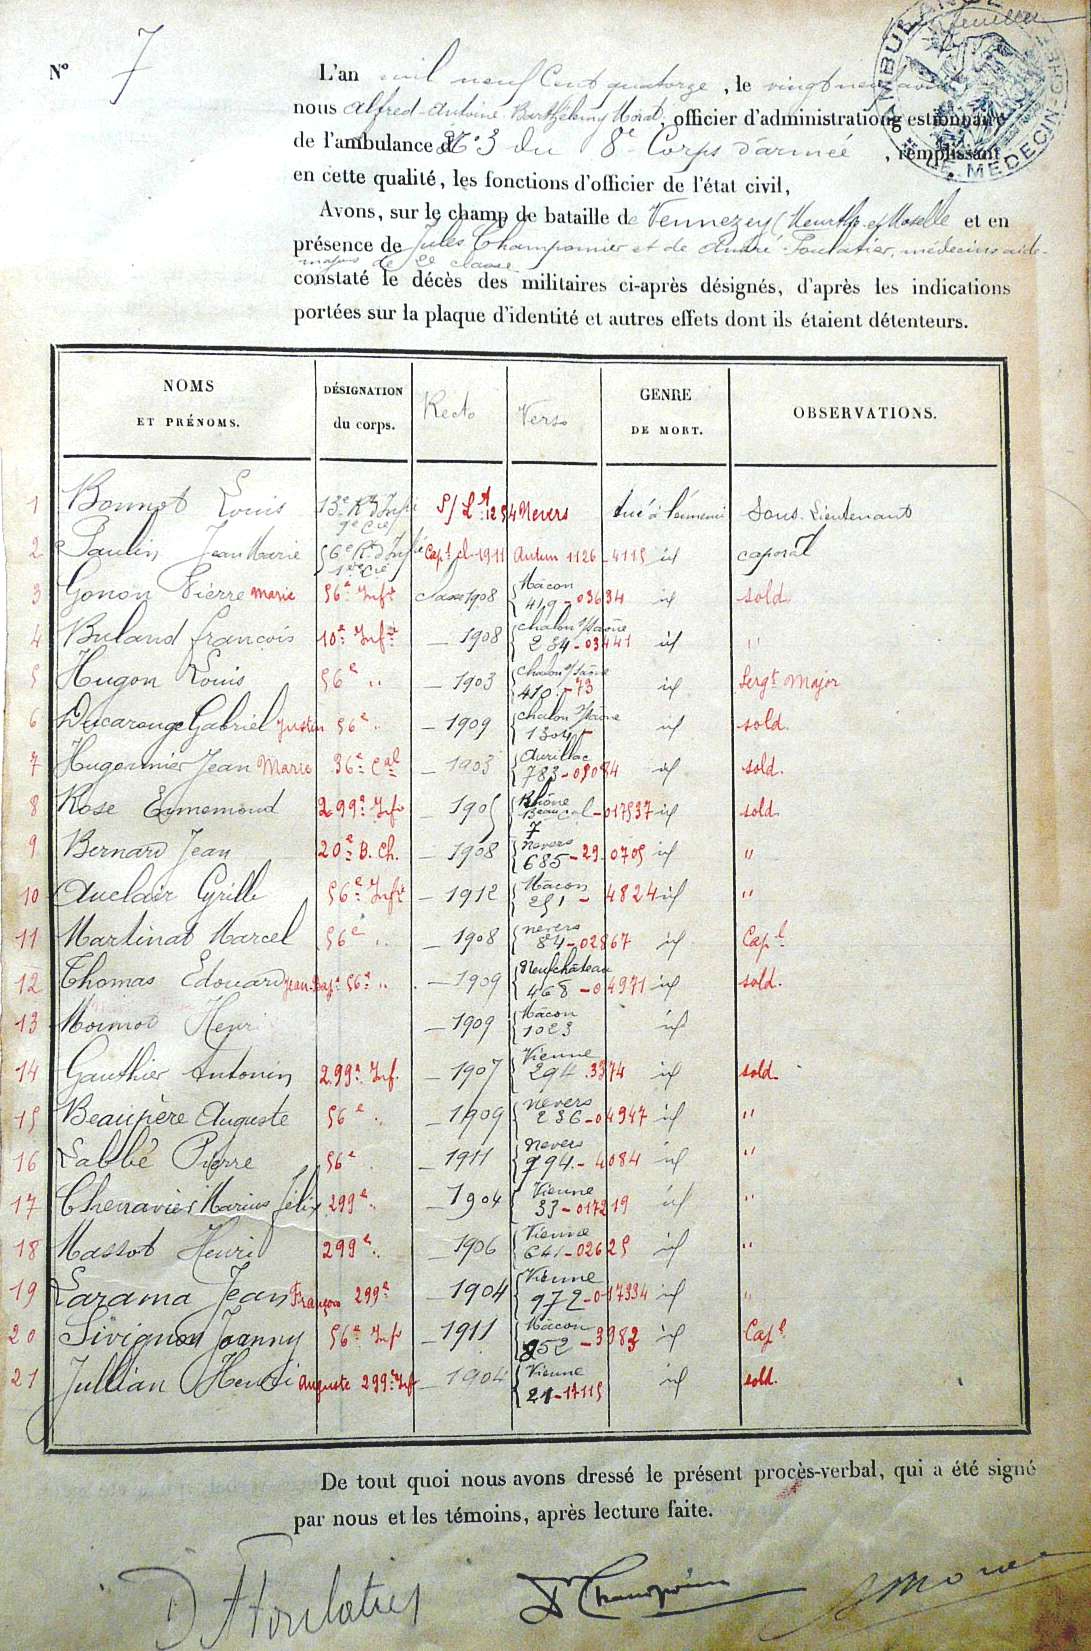 feuillet
AMBULANCE
MEDECIN-CHEF
N° 7
L'an mil neuf Cent quatorze, le vingt neuf
nous Alfred-Antoine-Barthélemy Morat, officier d'administration gestionnaire
de l'ambulance n° 3 du 8e Corps d'armée, remplissant
en cette qualité, les fonctions d'officier de l'état civil,
Avons, sur le champ de bataille de Vennezey (Meurthe et Moselle et en
présence de Jules Champomier et de André Foulatier, médecins aide-
majors de 2e classe
constaté le décès des militaires ci-après désignés, d'après les indications
portées sur la plaque d'identité et autres effets dont ils étaient détenteurs.
NOMS ET PRÉNOMS. DÉSIGNATION du corps. Recto Verso GENRE DE MORT. OBSERVATIONS.
1 Bonnot Louis 13e Rt d'Infie 9e Cie S/Lt 1254 Nevers tué à l'ennemi Sous-Lieutenant
2 Paulin Jean Marie 56e Rt d'Infie 1re Cie Capl cl 1911 Autun 1126 - 4115 id caporal
3 Gonon Pierre Marie 56e Infie Classe 1908 Mâcon 419 - 03634 id sold.
4 Buland françois 10e Infie — 1908 chalon s/saône 234 - 03441 id "
5 Hugon Louis 56e " — 1903 chalon s/saône 410 - 73 id Sergt Major
6 Ducarouge Gabriel Justin 56e " — 1909 chalon s/saône 1304 id sold.
7 Hugonnier Jean Marie 36e cal — 1903 Aurillac 783 - 09084 id sold.
8 Rose Enmemond 299e Inf — 1905 Rhône - 017537 id sold.
9 Bernard Jean 20e B. Ch. — 1908 7 nevers 685 - 29.0705 id "
10 Auclair Cyrille 56e Infie — 1912 Mâcon 251 - 4824 id "
11 Martinat Marcel 56e " — 1908 nevers 84 - 02867 id Capl
12 Thomas Edouard Jean-Bapt 56e " — 1909 Neufchâteau 468 - 04971 id sold.
13 Moinot Henri — 1909 Mâcon 1023 id
14 Gauthier Antonin 299e Inf. — 1907 Vienne 294 . 3374 id sold.
15 Beaupère Auguste 56e " — 1909 nevers 236 - 04947 id "
16 Labbé Pierre 56e " — 1911 nevers 994 - 4084 id "
17 Chenavier Marius félix 299e " — 1904 Vienne 33 - 017219 id "
18 Massot Henri 299e " — 1906 Vienne 641 - 02625 id "
19 Larama Jean François 299e — 1904 Vienne 972 - 017334 id "
20 Sivignon Joanny 56e Inf — 1911 Mâcon 852 - 3983 id Capl
21 Jullian Henri Auguste 299e Inf — 1904 Vienne 21 - 17115 id sold.
De tout quoi nous avons dressé le présent procès-verbal, qui a été signé
par nous et les témoins, après lecture faite.
D A Foulatier Dr Champomier Morat